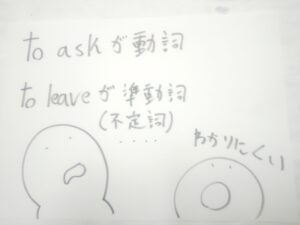 to ask が動詞
to leave が準動詞
(不定詞)
....
わかりにくい